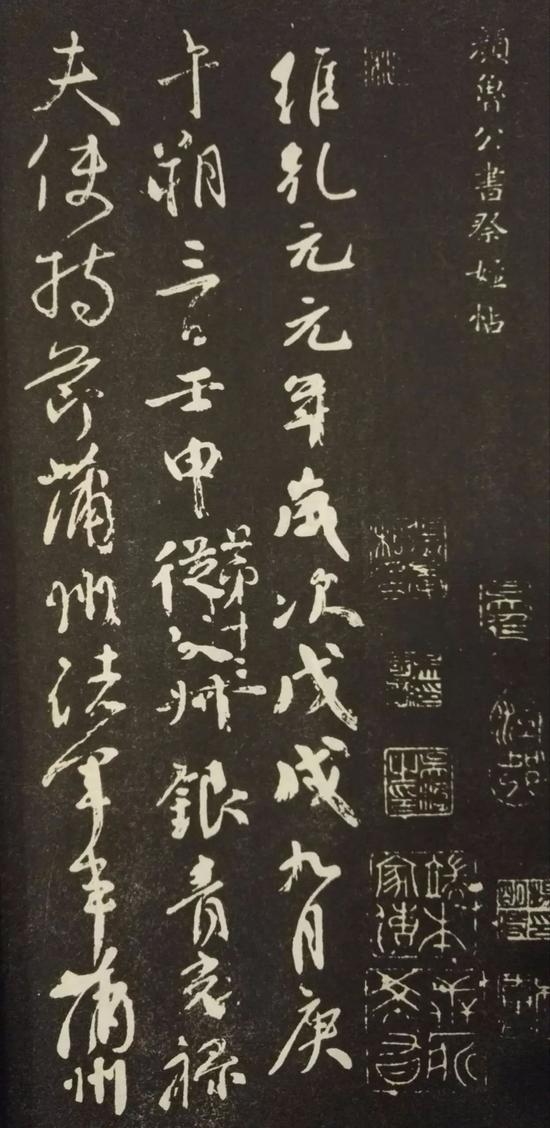 顏魯公書祭姪帖
維乾元元年歲次戊戌九月庚
午朔三日壬申第十三從父叔銀青光祿
夫使持節蒲州諸軍事蒲州